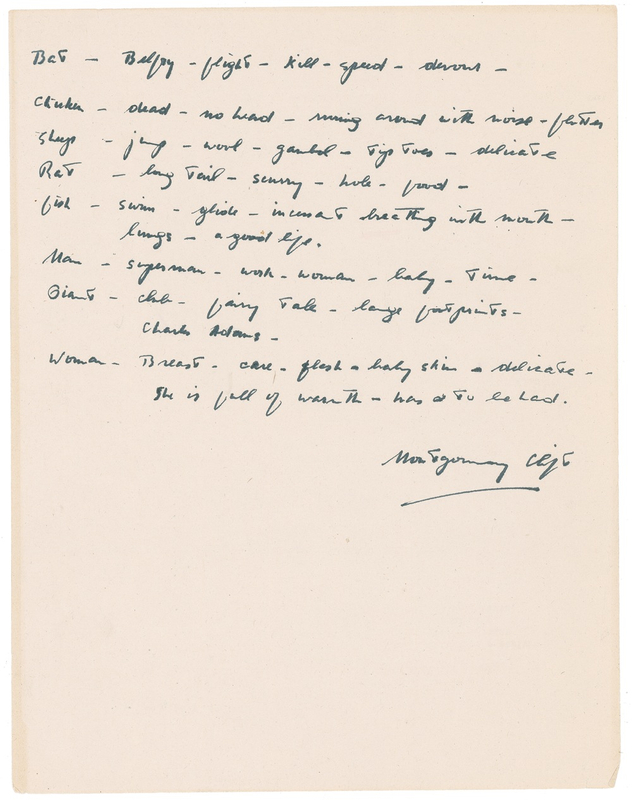 Bat - Belfry - flight - kill - speed - devour -
Chicken - dead - no head - runing around with noise - flutter
Sheep - jump - wool - gambol - Tip Toes - delicate
Rat - long Tail - scurry - hole - food -
fish - swim - glide - incessant breathing with mouth -
lungs - a good life.
Man - superman - work - woman - baby - Time -
Giant - club - fairy Tale - large footprints -
Charles Adams -
Woman - Breast - care - flesh - baby skin - delicate -
She is full of warmth - has to be had.
Montgomery Clift